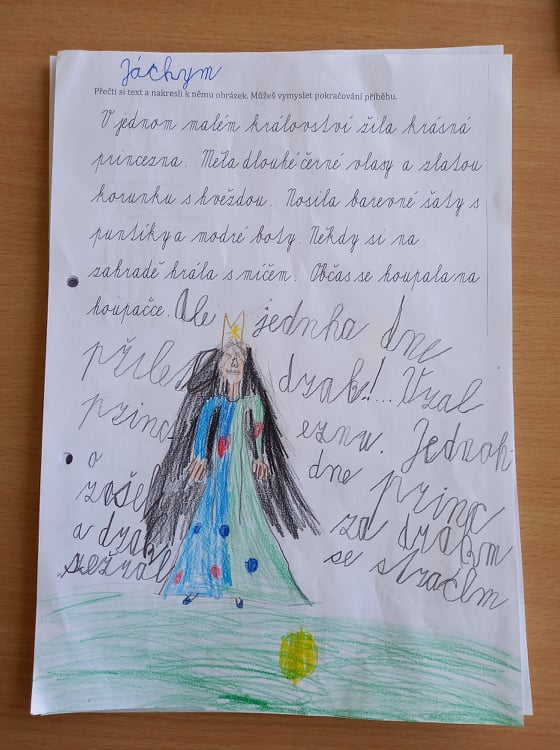 Jáchym
Přečti si text a nakresli k němu obrázek. Můžeš vymyslet pokračování příběhu.
V jednom malém království žila krásná
princezna. Měla dlouhé černé vlasy a zlatou
korunku s hvězdou. Nosila barevné šaty s
puntíky a modré boty. Někdy si na
zahradě hrála s míčem. Občas se houpala na
houpačce. Ale jednha dne
přilet drak!... Vzal
princ eznu. Jednoh
o dne princ
zošel za drakem
a drak se strachem
sežral